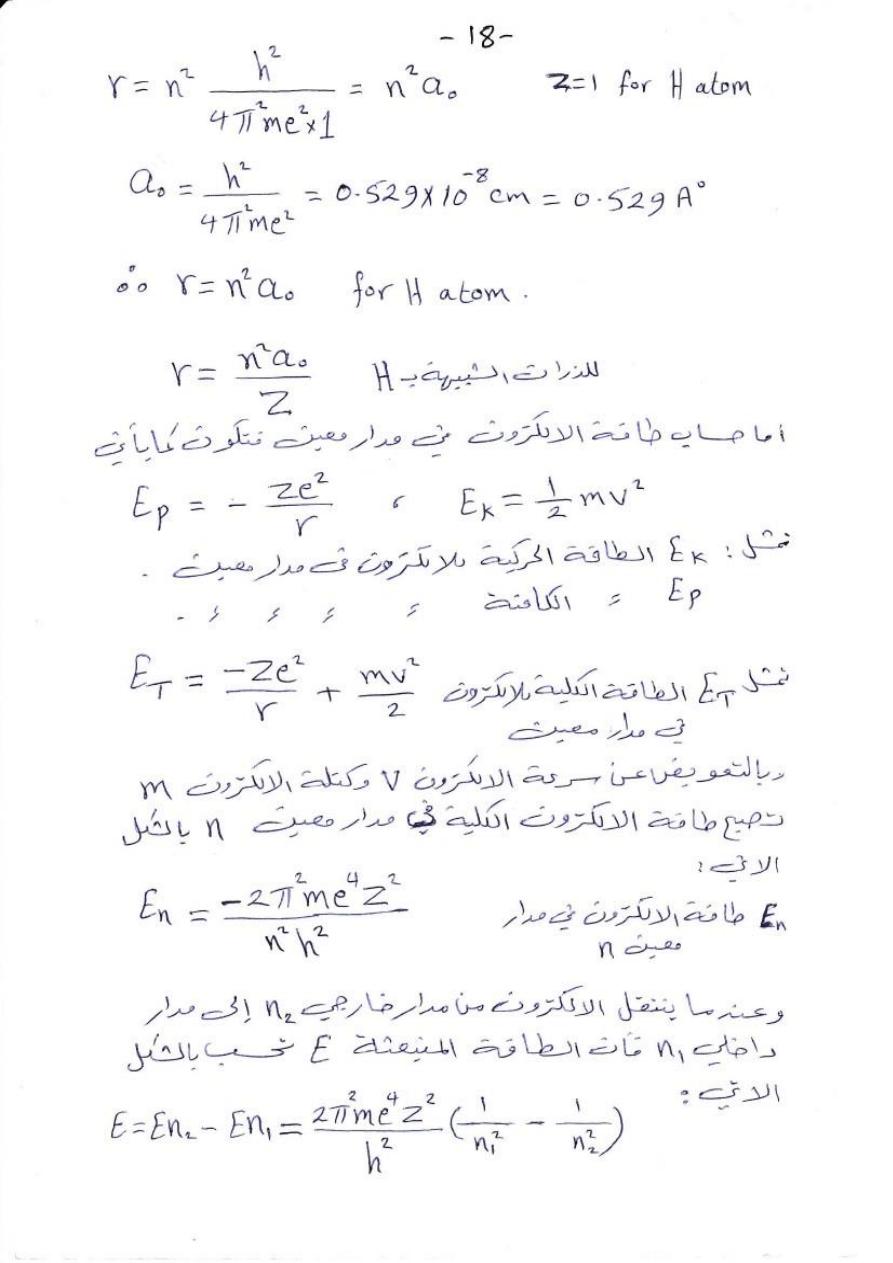 -18-
r = n² h² / 4π²me²×1 = n²a₀ Z=1 for H atom
a₀ = h² / 4π²me² = 0.529×10⁻⁸ cm = 0.529 A°
∴ r = n²a₀ for H atom.
r = n²a₀ / Z للذرات الشبيهة بـ H
أما حساب طاقة الالكترون في مدار معين فتكون كمايأتي
Ep = - Ze² / r ، EK = 1/2 mv²
تمثل : EK الطاقة الحركية للالكترون في مدار معين .
Ep ء الكامنة ء ء ء ء .
ET = -Ze² / r + mv² / 2 تمثل ET الطاقة الكلية للالكترون
في مدار معين
وبالتعويض عن سرعة الالكترون V وكتلة الالكترون m
تصبح طاقة الالكترون الكلية في مدار معين n بالشكل
الاتي :
En = -2π²me⁴Z² / n²h² En طاقة الالكترون في مدار
معين n
وعندما ينتقل الالكترون من مدار خارجي n₂ إلى مدار
داخلي n₁ فأن الطاقة المنبعثة E تحسب بالشكل
الاتي :
E = En₂ - En₁ = 2π²me⁴Z² / h² (1/n₁² - 1/n₂²)